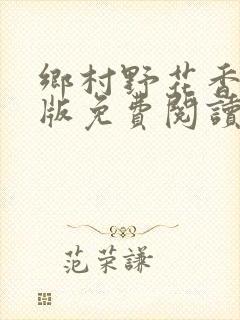 鄉村野花香
版免費閱讀
范荣謙